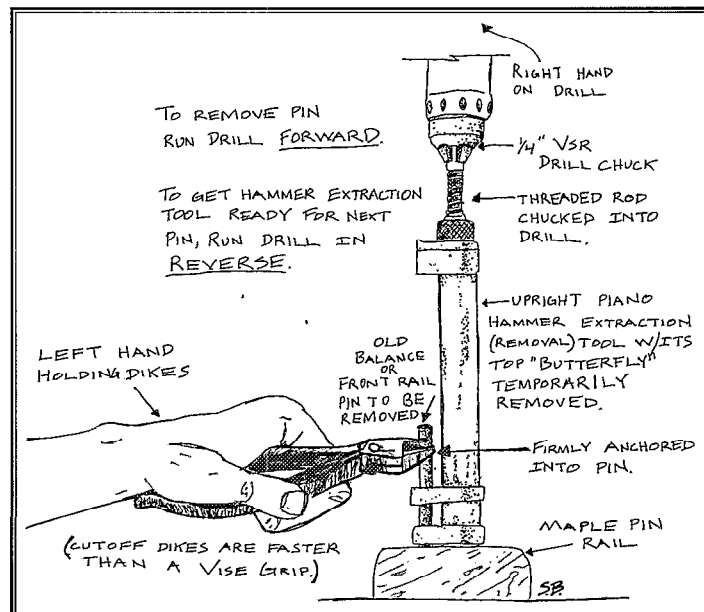 RIGHT HAND
ON DRILL
TO REMOVE PIN
RUN DRILL FORWARD.
1/4" VSR
DRILL CHUCK
TO GET HAMMER EXTRACTION
TOOL READY FOR NEXT
PIN, RUN DRILL IN
REVERSE.
THREADED ROD
CHUCKED INTO
DRILL.
UPRIGHT PIANO
HAMMER EXTRACTION
(REMOVAL) TOOL W/ITS
TOP "BUTTERFLY"
TEMPORARILY
REMOVED.
OLD
BALANCE
OR
FRONT RAIL
PIN TO BE
REMOVED
LEFT HAND
HOLDING DIKES
FIRMLY ANCHORED
INTO PIN.
MAPLE PIN
RAIL
(CUTOFF DIKES ARE FASTER
THAN A VISE GRIP.)
S.B.